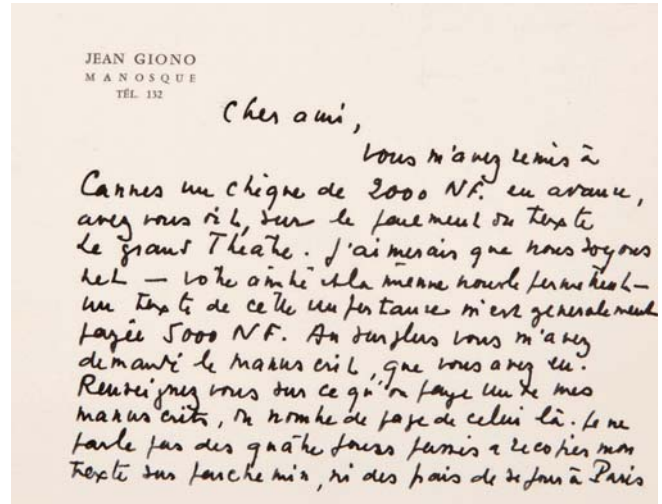 JEAN GIONO
MANOSQUE
TÉL. 132
Cher ami,
vous m'avez remis à
Cannes un chèque de 2000 NF. en avance,
avez vous dit, sur le paiement du texte
Le grand Théâtre. J'aimerais que nous soyons
net — votre amitié et la mienne nous le permettent —
un texte de cette importance m'est généralement
payée 5000 NF. Au surplus vous m'avez
demandé le manuscrit, que vous avez eu.
Renseignez vous sur ce qu'on paye un de mes
manuscrits, du nombre de page de celui là. Je ne
parle pas des quatre jours passés a recopier mon
texte sur parchemin, ni des frais de séjour à Paris